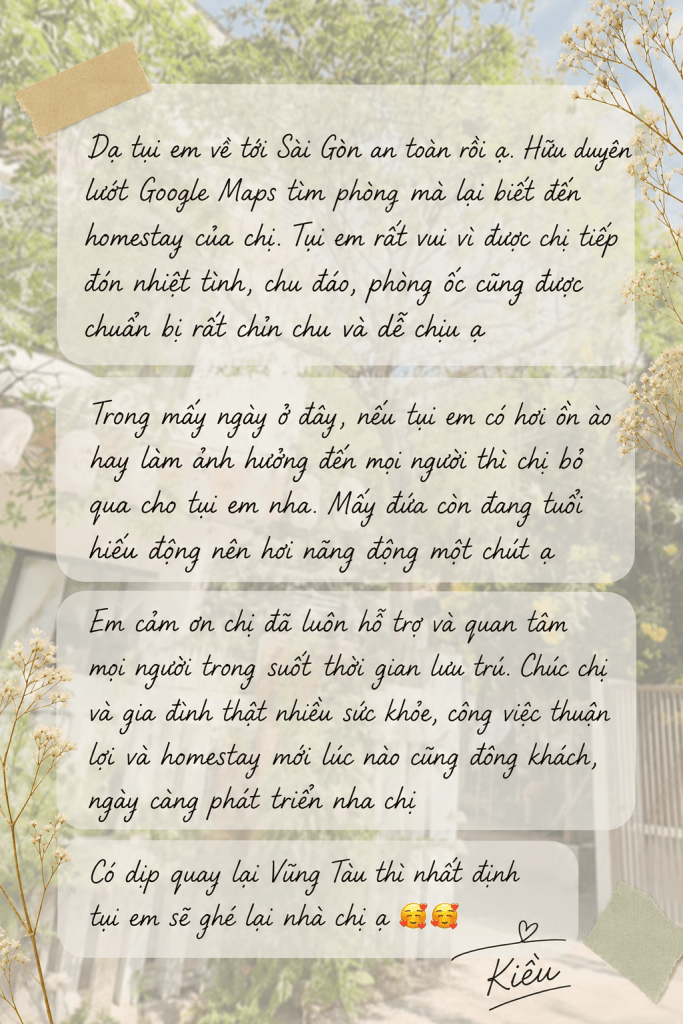 Dạ tụi em về tới Sài Gòn an toàn rồi ạ. Hữu duyên
lướt Google Maps tìm phòng mà lại biết đến
homestay của chị. Tụi em rất vui vì được chị tiếp
đón nhiệt tình, chu đáo, phòng ốc cũng được
chuẩn bị rất chỉn chu và dễ chịu ạ
Trong mấy ngày ở đây, nếu tụi em có hơi ồn ào
hay làm ảnh hưởng đến mọi người thì chị bỏ
qua cho tụi em nha. Mấy đứa còn đang tuổi
hiếu động nên hơi năng động một chút ạ
Em cảm ơn chị đã luôn hỗ trợ và quan tâm
mọi người trong suốt thời gian lưu trú. Chúc chị
và gia đình thật nhiều sức khỏe, công việc thuận
lợi và homestay mới lúc nào cũng đông khách,
ngày càng phát triển nha chị
Có dịp quay lại Vũng Tàu thì nhất định
tụi em sẽ ghé lại nhà chị ạ 🥰🥰
Kiều